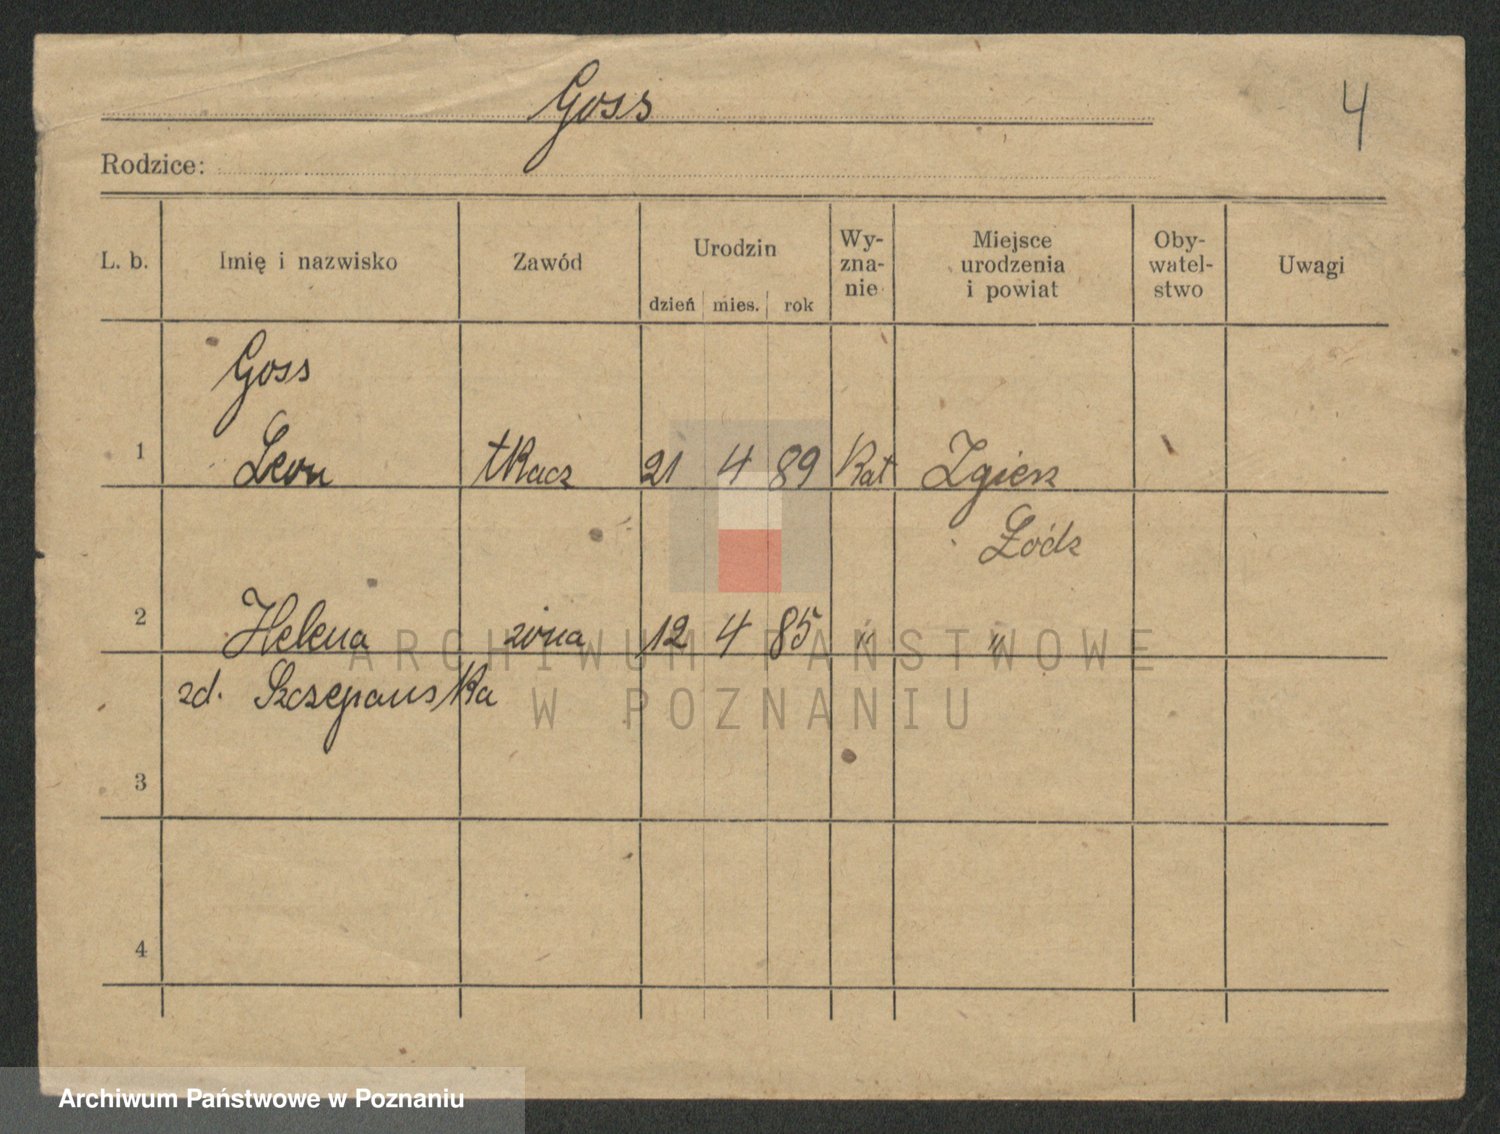 Goss
4
Rodzice:
L. b. Imię i nazwisko Zawód Urodzin dzień mies. rok Wy-zna-nie Miejsce urodzenia i powiat Oby-watel-stwo Uwagi
Goss
1 Leon tkacz 21 4 89 Kat Zgierz
Łódz
2 Helena żona 12 4 85 " "
zd. Szczepanska
3
4
ARCHIWUM PAŃSTWOWE
W POZNANIU
Archiwum Państwowe w Poznaniu